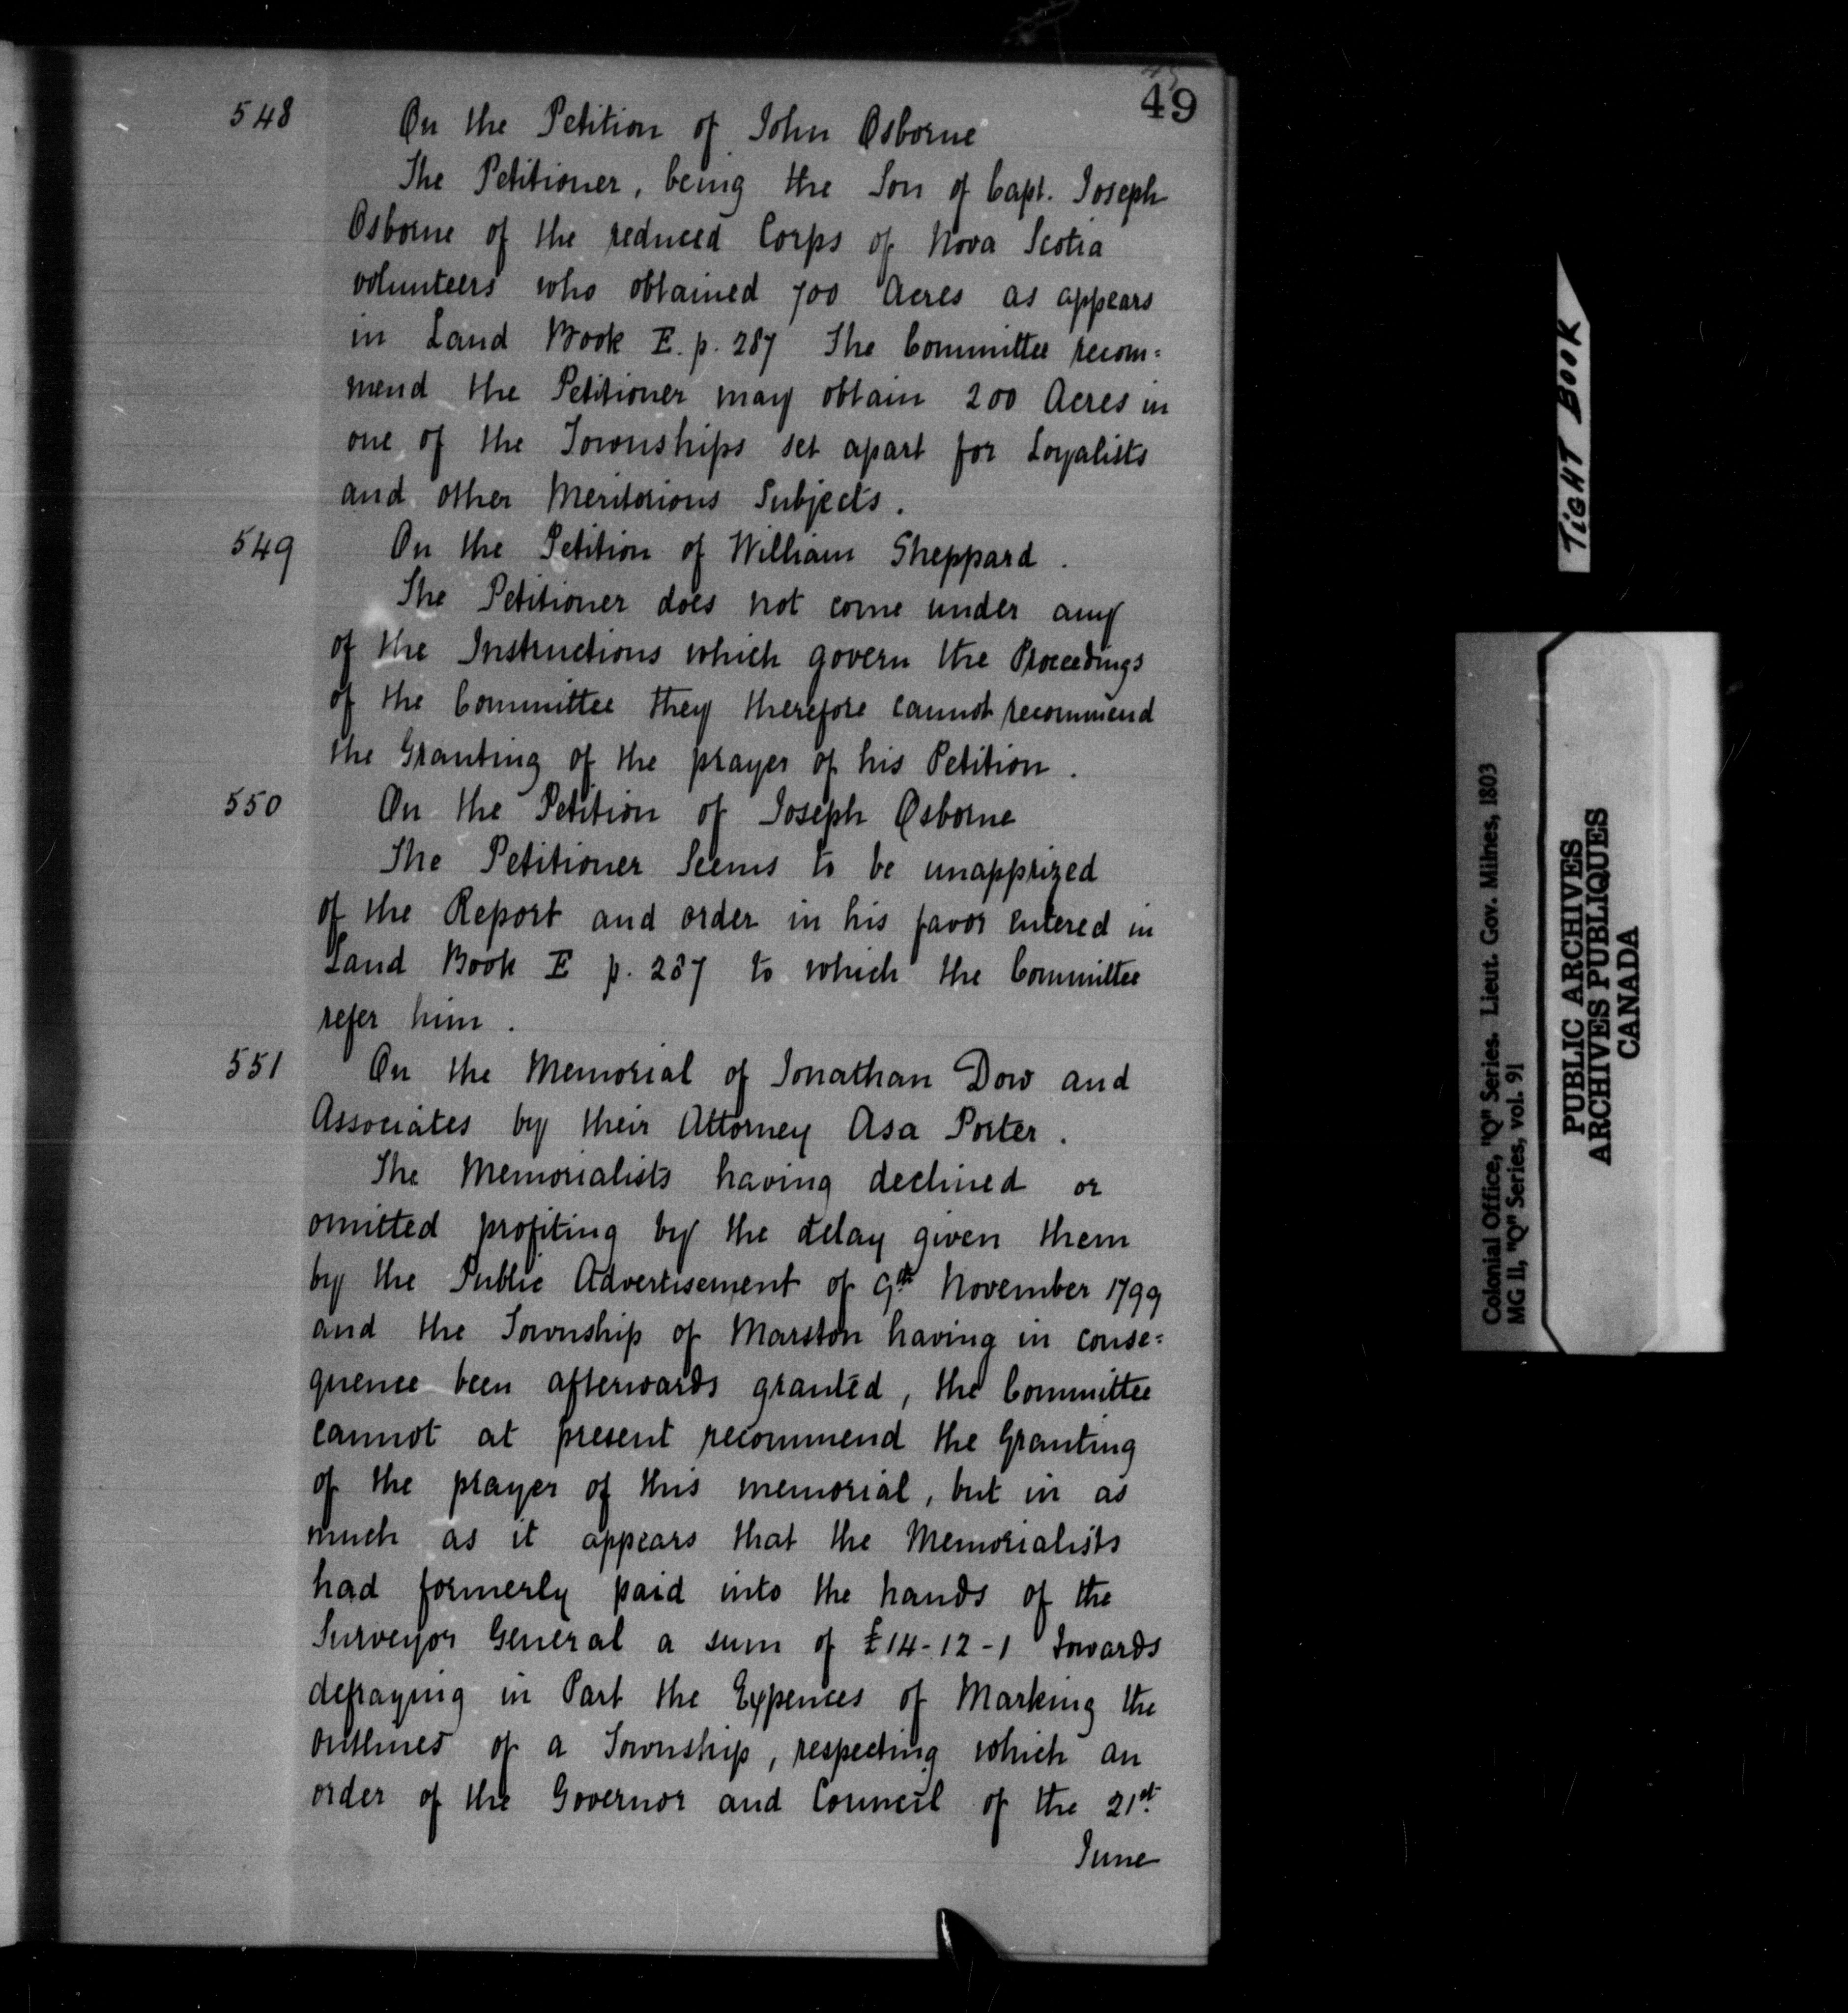 49
548 On the Petition of John Osborne
The Petitioner, being the Son of Capt. Joseph
Osborne of the reduced Corps of Nova Scotia
volunteers who obtained 700 Acres as appears
in Land Book E. p. 287 The Committee recom=
mend the Petitioner may obtain 200 Acres in
one of the Townships set apart for Loyalists
and other Meritorious Subjects.
549 On the Petition of William Sheppard.
The Petitioner does not come under any
of the Instructions which govern the Proceedings
of the Committee they therefore cannot recommend
the Granting of the prayer of his Petition.
550 On the Petition of Joseph Osborne
The Petitioner Seems to be unapprized
of the Report and order in his favor entered in
Land Book E p. 287 to which the Committee
refer him.
551 On the Memorial of Jonathan Dow and
Associates by their Attorney Asa Porter.
The Memorialists having declined or
omitted profiting by the delay given them
by the Public Advertisement of 9th November 1799
and the Township of Marston having in conse=
quence been afterwards granted, the Committee
cannot at present recommend the Granting
of the prayer of this memorial, but in as
much as it appears that the Memorialists
had formerly paid into the hands of the
Surveyor General a sum of £14-12-1 towards
defraying in Part the Expences of Marking the
outlines of a Township, respecting which an
order of the Governor and Council of the 21st
June
TiGHT BOOK
Colonial Office, "Q" Series. Lieut. Gov. Milnes, 1803
MG 11, "Q" Series, vol. 91
PUBLIC ARCHIVES
ARCHIVES PUBLIQUES
CANADA